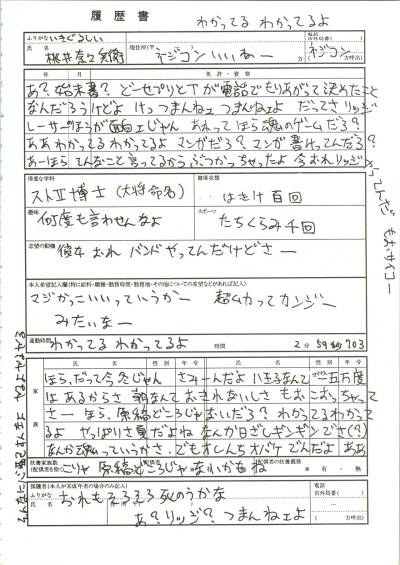 履歴書
わかってる わかってるよ
ふりがな いきぐるしい
氏名
現住所(〒)
ネジコン いいねー
方
電話
市外局番( )
ネジコン
(方呼出)
年 月 免許・資格
あ?始末書? どーせプリとTが電話でもりあがって決めたこと
なんだろうけどよ けっ つまんねェ つまんねェよ だってさ リッジ
レーサーのほうが面白ェじゃん あれってほら魂のゲームだろ?
ああ わかってる わかってるよ マンガだろ? マンガ書けってんだろ?
あーほら てんなこと言ってるからぶつかっちゃったよ 今おれリッジ
やってんだ
得意な学科
ストⅡ博士(大将命名)
健康状態
はきけ百回
趣味
何度も言わせんなよ
スポーツ
たちくらみ千回
志望の動機
彼女 おれ バンドやってんだけどさー
本人希望記入欄(特に給料・職種・勤務時間・勤務地・その他についての希望などがあれば記入)
マジかっこいいっていうかー 超ムカってカンジー
みたいなー
通勤時間
わかってる わかってるよ
時間
2分59秒703
家族
氏名 性別 年令 氏名 性別 年令
ほら、だって今冬じゃん さみーんだよ
はあるからさ 朝なんておきれないしさ もおこおっちゃって
さー ほら、原稿どころじゃないだろ? わかってるわかって
るよ やっぱりさ夏だよね なんか日ざしギンギンでさ(?)
なんか魂っていうかさ。でもオレんちオバケでんだよ ああ
扶養家族数
(配偶者を除く)
こりゃ 原稿どころじゃないかもね
配偶者
配偶者の扶養義務
有・無
保護者(本人が未成年者の場合のみ記入)
ふりがな
おれもそろそろ死のうかな
あ? リッジ? つまんねェよ
電話
市外局番( )
(方呼出)